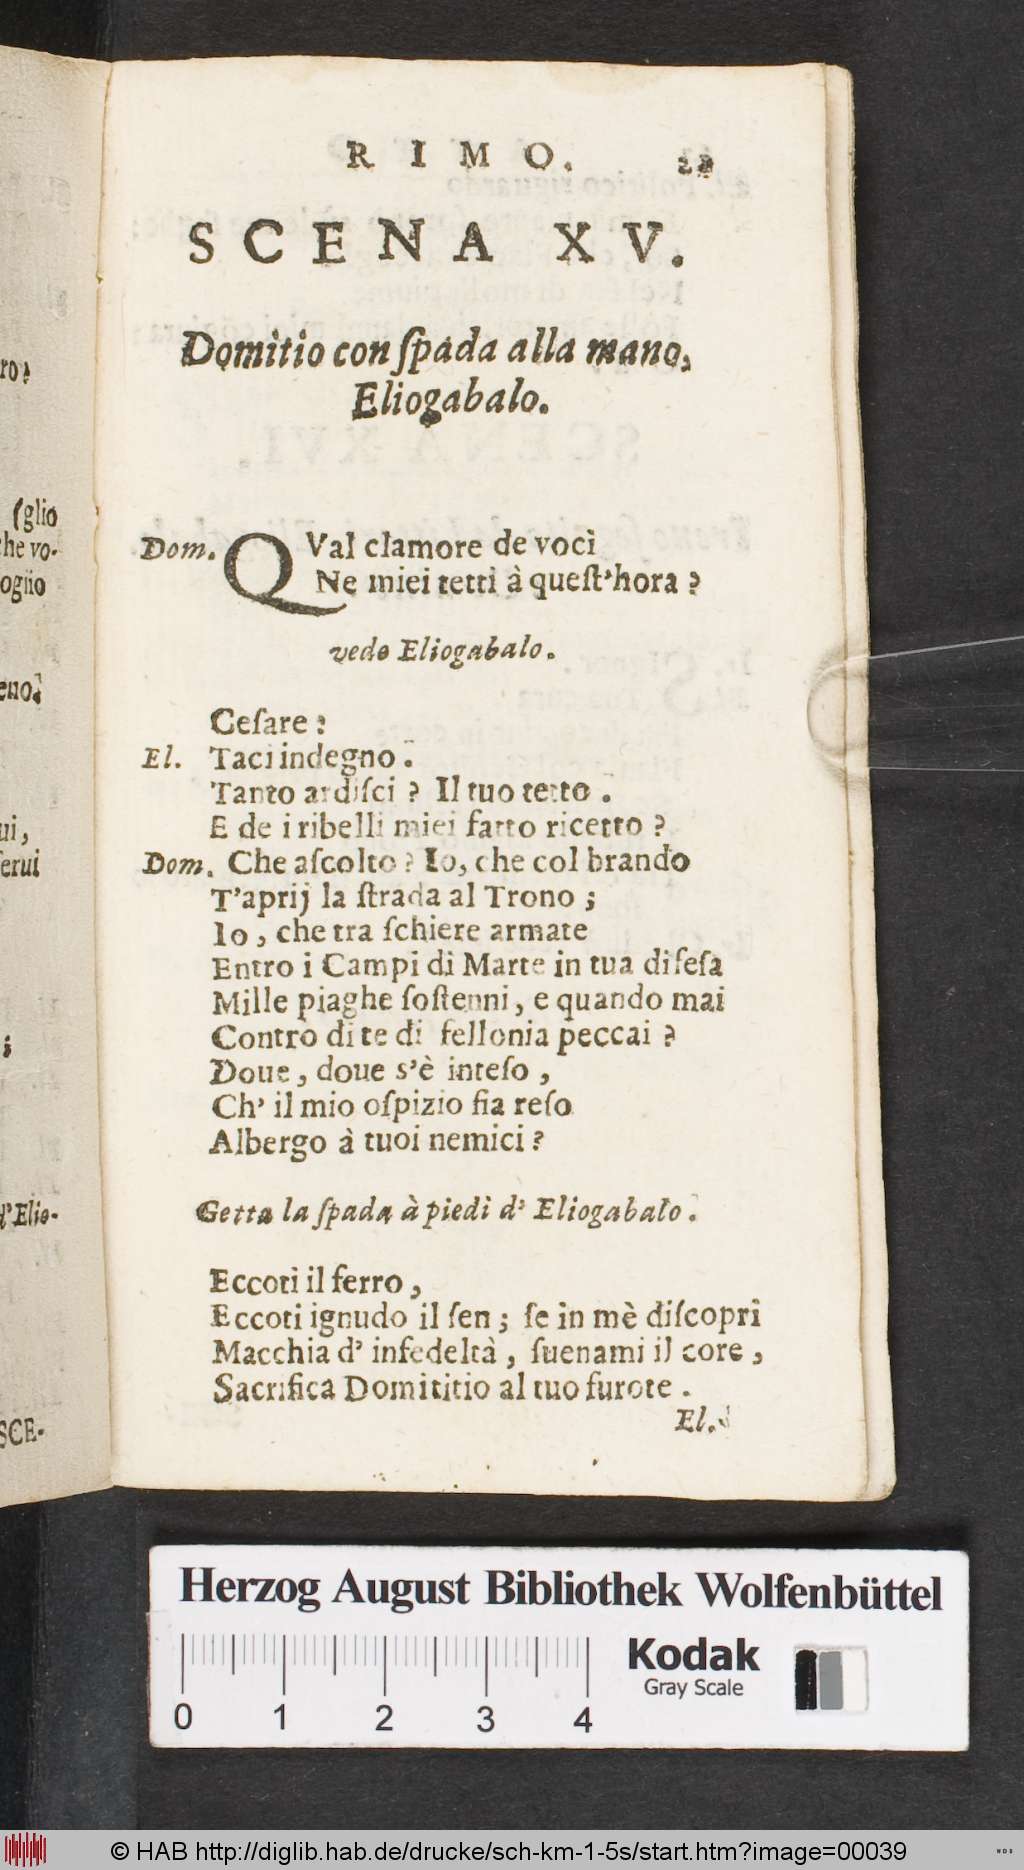 ro?
(glio
che vo-
oglio
eno?
ui,
ſerui
;
d'Elio-
SCE-
R I M O.
SCENA XV.
Domitio con ſpada alla mano,
Eliogabalo.
Dom. QVal clamore de voci
Ne miei tetti à queſt'hora?
vede Eliogabalo.
Ceſare:
El. Taci indegno.
Tanto ardiſci? Il tuo tetto.
E de i ribelli miei fatto ricetto?
Dom. Che aſcolto? Io, che col brando
T'aprij la ſtrada al Trono;
Io, che tra ſchiere armate
Entro i Campi di Marte in tua difeſa
Mille piaghe ſoſtenni, e quando mai
Contro di te di fellonia peccai?
Doue, doue s'è inteſo,
Ch' il mio oſpizio ſia reſo
Albergo à tuoi nemici?
Getta la ſpada à piedi d' Eliogabalo.
Eccoti il ferro,
Eccoti ignudo il ſen; ſe in mè diſcopri
Macchia d' infedeltà, ſuenami il core,
Sacrifica Domititio al tuo furore.
El.
Herzog August Bibliothek Wolfenbüttel
0 1 2 3 4
Kodak
Gray Scale
© HAB http://diglib.hab.de/drucke/sch-km-1-5s/start.htm?image=00039